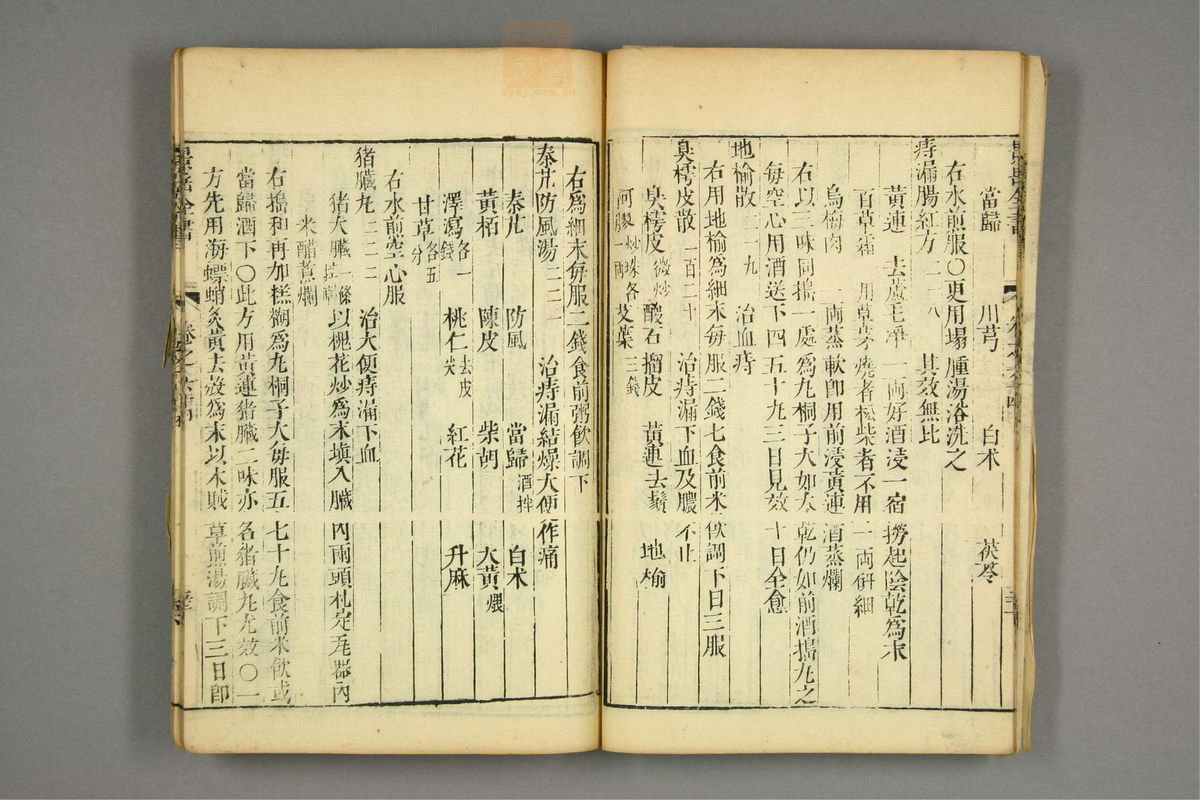 當歸 川芎 白朮 茯苓
右水煎服○更用塌腫湯浴洗之
痔漏腸紅方二一八 其效無比
黃連去蘆毛淨一兩好酒浸一宿撈起陰乾為末
百草霜用草茅燒者極柴者不用一兩研細
烏梅肉一兩蒸軟卽用前浸黃連酒蒸爛
右以三味同搗一處為丸桐子大如太乾仍如前酒搗丸之
每空心用酒送下四五十丸三日見效十日全愈
地榆散 九 治血痔
右用地榆為細末每服二錢七食前米飲調下日三服
臭樗皮散一百二十 治痔漏下血及膿不止
臭樗皮微炒 酸石榴皮 黃連去鬚 地榆
阿膠炒珠各一兩 艾葉三錢
右為細末每服二錢食前粥飲調下
秦艽防風湯 治痔漏結燥大便作痛
秦艽 防風 當歸酒拌 白朮
黃栢 陳皮 柴胡 大黃煨
澤瀉各一錢 桃仁去皮尖 紅花 升麻
甘草各五分
右水煎空心服
猪臟丸一二二 治大便痔漏下血
猪大臟一條控乾以槐花炒為末塡入臟內兩頭札定瓦器內
米醋煮爛
右搗和再加糕糊為丸桐子大每服五七十丸食前米飲或
當歸酒下○此方用黃連猪臟二味亦名猪臟丸尤效○一
方先用海螵蛸炙黃去殼為末以木賊草煎湯調下三日卽
景岳全書
卷之六十四